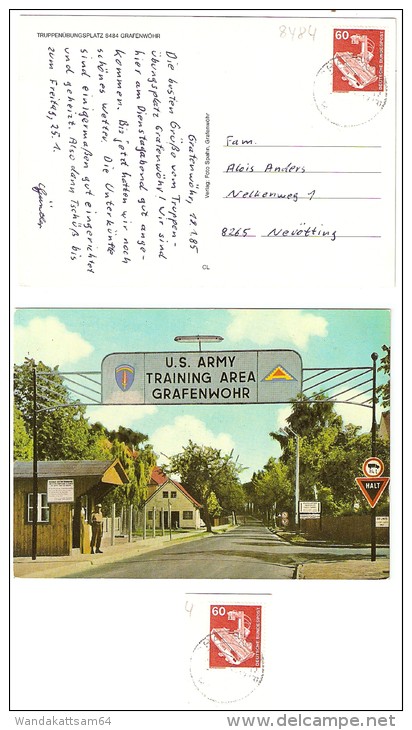 TRUPPENÜBUNGSPLATZ 8484 GRAFENWÖHR
8484
60
DEUTSCHE BUNDESPOST
Grafenwöhr, 18.1.85
Die besten Grüße vom Truppen-
übungsplatz Grafenwöhr! Wir sind
hier am Dienstagabend gut ange-
kommen. Bis jetzt hatten wir noch
schönes Wetter. Die Unterkünfte
sind einigermaßen gut eingerichtet
und geheizt. Also dann Tschüß bis
zum Freitag, 25.1.
Verlag Foto Spahn, Grafenwöhr
Fam.
Alois Anders
Nelkenweg 1
8265 Neuötting
U.S. ARMY
TRAINING AREA
GRAFENWOHR
HALT
4
60
DEUTSCHE BUNDESPOST
Wandakattsam64